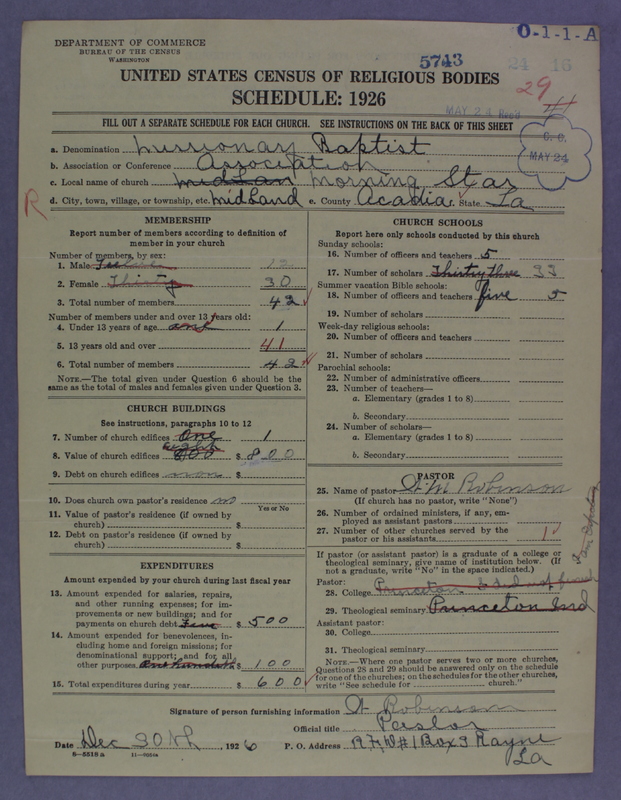 DEPARTMENT OF COMMERCE
BUREAU OF THE CENSUS
WASHINGTON
O-1-1-A
5743
24 16
29
UNITED STATES CENSUS OF RELIGIOUS BODIES
SCHEDULE: 1926
MAY 24 Recd
FILL OUT A SEPARATE SCHEDULE FOR EACH CHURCH. SEE INSTRUCTIONS ON THE BACK OF THIS SHEET
C. C.
MAY 24
a. Denomination Missionary Baptist
b. Association or Conference Association
c. Local name of church midlan morning Star
R
d. City, town, village, or township, etc. midland e. County Acadia State La
MEMBERSHIP
Report number of members according to definition of
member in your church
Number of members, by sex:
1. Male Twelve 12
2. Female Thirty 30
3. Total number of members 42
Number of members under and over 13 years old:
4. Under 13 years of age one 1
5. 13 years old and over 41
6. Total number of members 42
NOTE.—The total given under Question 6 should be the
same as the total of males and females given under Question 3.
CHURCH BUILDINGS
See instructions, paragraphs 10 to 12
7. Number of church edifices One 1
eight
8. Value of church edifices 800 $ 800
9. Debt on church edifices none $
10. Does church own pastor's residence no
Yes or No
11. Value of pastor's residence (if owned by
church) $
12. Debt on pastor's residence (if owned by
church) $
EXPENDITURES
Amount expended by your church during last fiscal year
13. Amount expended for salaries, repairs,
and other running expenses; for im-
provements or new buildings; and for
payments on church debt Five $ 500
14. Amount expended for benevolences, in-
cluding home and foreign missions; for
denominational support; and for all
other purposes One hundred $ 100
15. Total expenditures during year $ 600
CHURCH SCHOOLS
Report here only schools conducted by this church
Sunday schools:
16. Number of officers and teachers 5
17. Number of scholars Thirty three 33
Summer vacation Bible schools:
18. Number of officers and teachers five 5
19. Number of scholars
Week-day religious schools:
20. Number of officers and teachers
21. Number of scholars
Parochial schools:
22. Number of administrative officers
23. Number of teachers—
a. Elementary (grades 1 to 8)
b. Secondary
24. Number of scholars—
a. Elementary (grades 1 to 8)
b. Secondary
PASTOR
25. Name of pastor W M Robinson
(If church has no pastor, write "None")
26. Number of ordained ministers, if any, em-
ployed as assistant pastors
27. Number of other churches served by the
pastor or his assistants 1
If pastor (or assistant pastor) is a graduate of a college or
theological seminary, give name of institution below. (If
not a graduate, write "No" in the space indicated.)
Pastor:
28. College Princeton I did not finish
29. Theological seminary Princeton Ind
Assistant pastor:
30. College
31. Theological seminary
NOTE.—Where one pastor serves two or more churches,
Questions 28 and 29 should be answered only on the schedule
for one of the churches; on the schedules for the other churches,
write "See schedule for church."
Signature of person furnishing information W Robinson
Official title Pastor
Date Dec 30th, 1926 P. O. Address R F D #1 Box 3 Rayne
La
8—5518a 11—9024a